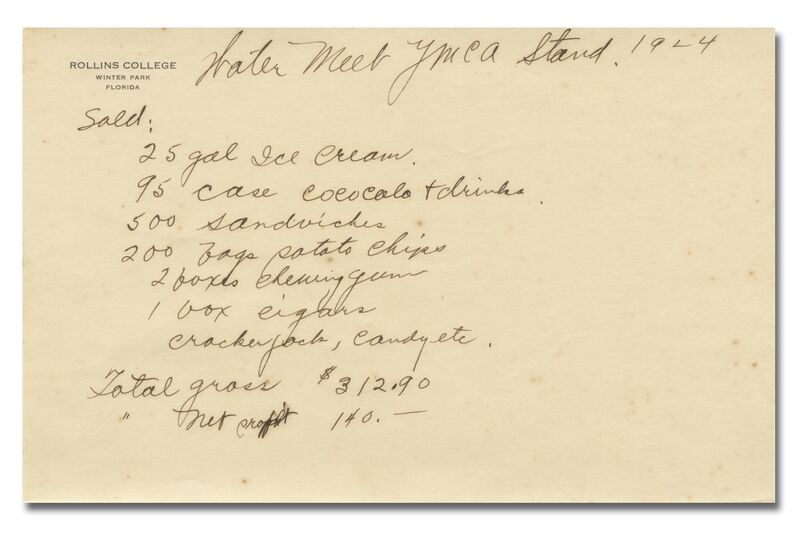 ROLLINS COLLEGE
WINTER PARK
FLORIDA
Water Meet YMCA Stand. 1924
Sold:
25 gal Ice Cream.
95 case cococola + drinks.
500 sandwiches
200 bags potato chips
2 boxes chewing gum
1 box cigars
crackerjack, candy etc.
Total gross $312.90
" Net profit 140.—